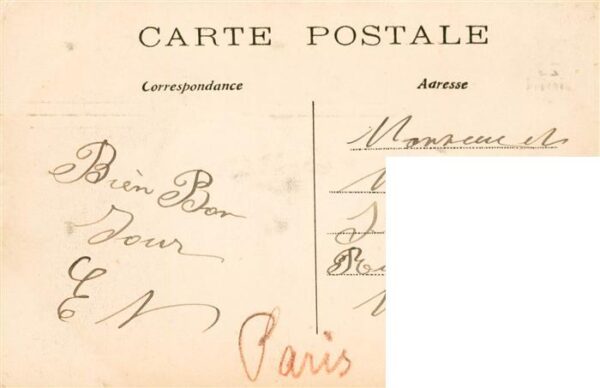 CARTE POSTALE
Correspondance
Adresse
Bien Bon
Jour
E N
Monsieur et
Paris